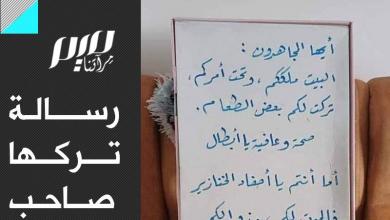 رسالة
تركها
صاحب
أيها المجاهدون :
البيت ملككم ، وتحت أمركم .
تركت لكم بعض الطعام .
صحة وعافية يا أبطال
أما أنتم يا أحفاد الخنازير